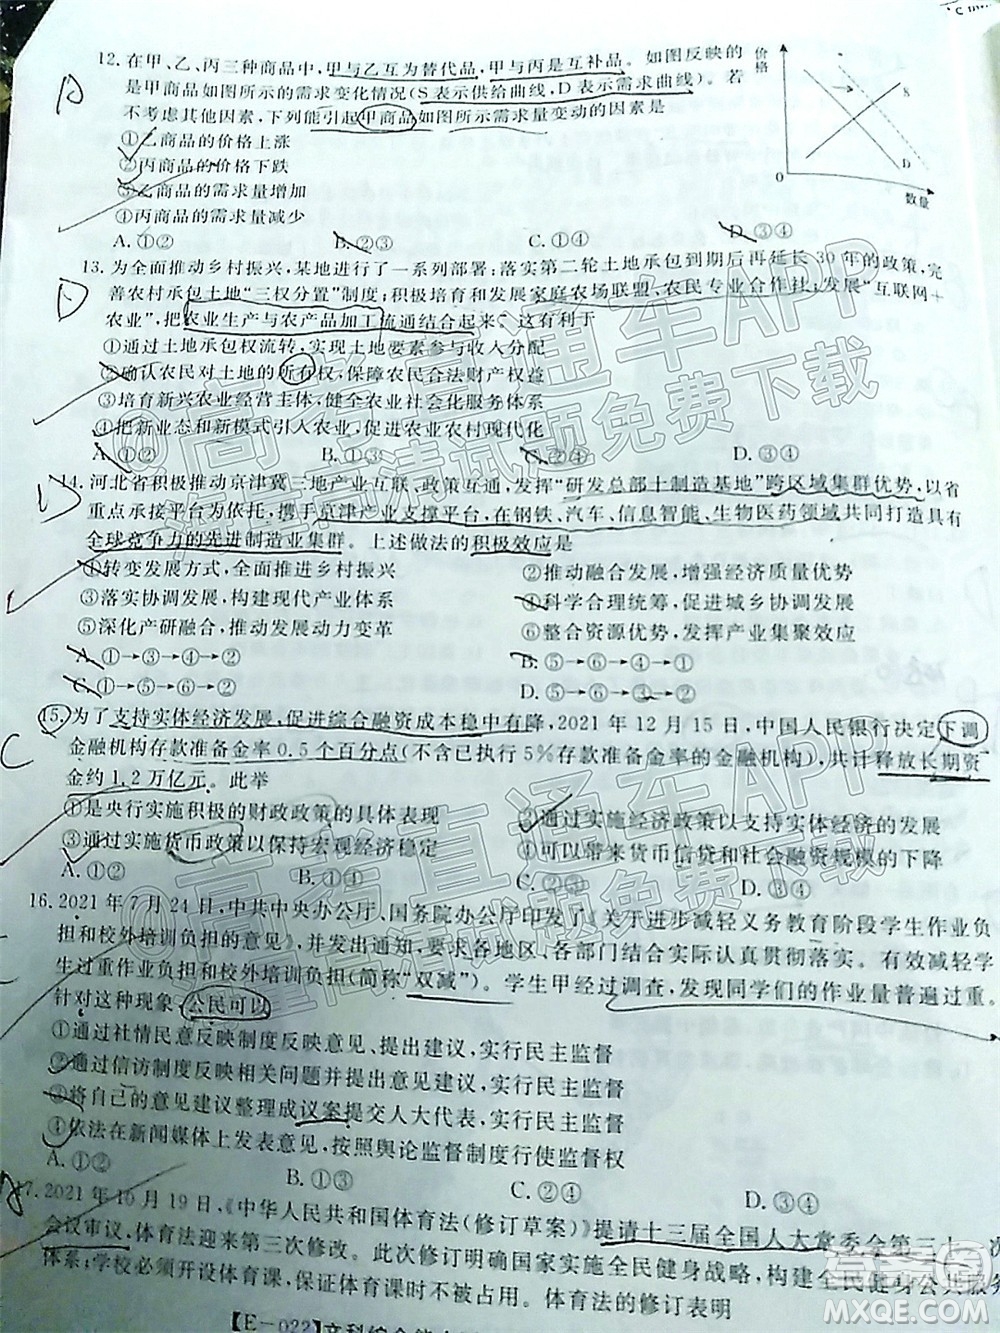 12. 在甲、乙、丙三种商品中,甲与乙互为替代品,甲与丙是互补品。如图反映的
是甲商品如图所示的需求变化情况(S表示供给曲线,D表示需求曲线)。若
不考虑其他因素,下列能引起甲商品如图所示需求量变动的因素是
①乙商品的价格上涨
②丙商品的价格下跌
③乙商品的需求量增加
④丙商品的需求量减少
A.①② B.②③ C.①④ D.③④
价格
S
D
0
数量
A
13. 为全面推动乡村振兴,某地进行了一系列部署:落实第二轮土地承包到期后再延长30年的政策,完
善农村承包土地“三权分置”制度;积极培育和发展家庭农场联盟、农民专业合作社;发展“互联网+
农业”,把农业生产与农产品加工流通结合起来。这有利于
①通过土地承包权流转,实现土地要素参与收入分配
②确认农民对土地的所有权,保障农民合法财产权益
③培育新兴农业经营主体,健全农业社会化服务体系
④把新业态和新模式引入农业,促进农业农村现代化
A.①② B.①③ C.②④ D.③④
D
14. 河北省积极推动京津冀三地产业互联、政策互通,发挥“研发总部+制造基地”跨区域集群优势,以省
重点承接平台为依托,携手京津产业支撑平台,在钢铁、汽车、信息智能、生物医药领域共同打造具有
全球竞争力的先进制造业集群。上述做法的积极效应是
①转变发展方式,全面推进乡村振兴 ②推动融合发展,增强经济质量优势
③落实协调发展,构建现代产业体系 ④科学合理统筹,促进城乡协调发展
⑤深化产研融合,推动发展动力变革 ⑥整合资源优势,发挥产业集聚效应
A.①→③→④→② B.⑤→⑥→④→①
C.④→⑤→②→① D.⑤→⑥→②→③
D
15. 为了支持实体经济发展,促进综合融资成本稳中有降,2021年12月15日,中国人民银行决定下调
金融机构存款准备金率0.5个百分点(不含已执行5%存款准备金率的金融机构),共计释放长期资
金约1.2万亿元。此举
①是央行实施积极的财政政策的具体表现 ②通过实施经济政策以支持实体经济的发展
③通过实施货币政策以保持宏观经济稳定 ④可以带来货币信贷和社会融资规模的下降
A.①② B.①④ C.②③ D.③④
C
16. 2021年7月24日,中共中央办公厅、国务院办公厅印发了《关于进步减轻义务教育阶段学生作业负
担和校外培训负担的意见》,并发出通知,要求各地区、各部门结合实际认真贯彻落实。有效减轻学
生过重作业负担和校外培训负担(简称“双减”)。学生甲经过调查,发现同学们的作业量普遍过重。
针对这种现象公民可以
①通过社情民意反映制度反映意见、提出建议,实行民主监督
②通过信访制度反映相关问题并提出意见建议,实行民主监督
③将自己的意见建议整理成议案提交人大代表,实行民主监督
④依法在新闻媒体上发表意见,按照舆论监督制度行使监督权
A.①② B.①③ C.②④ D.③④
17. 2021年10月19日,《中华人民共和国体育法(修订草案)》提请十三届全国人大常委会第三十一次
会议审议,体育法迎来第三次修改。此次修订明确国家实施全民健身战略,构建全民健身公共服务
体系;学校必须开设体育课,保证体育课时不被占用。体育法的修订表明
【E-022】文科综合
@高考直通车APP
海量高清试题免费下载
@高考直通车APP
海量高清试题免费下载
答案圈
MXQE.COM